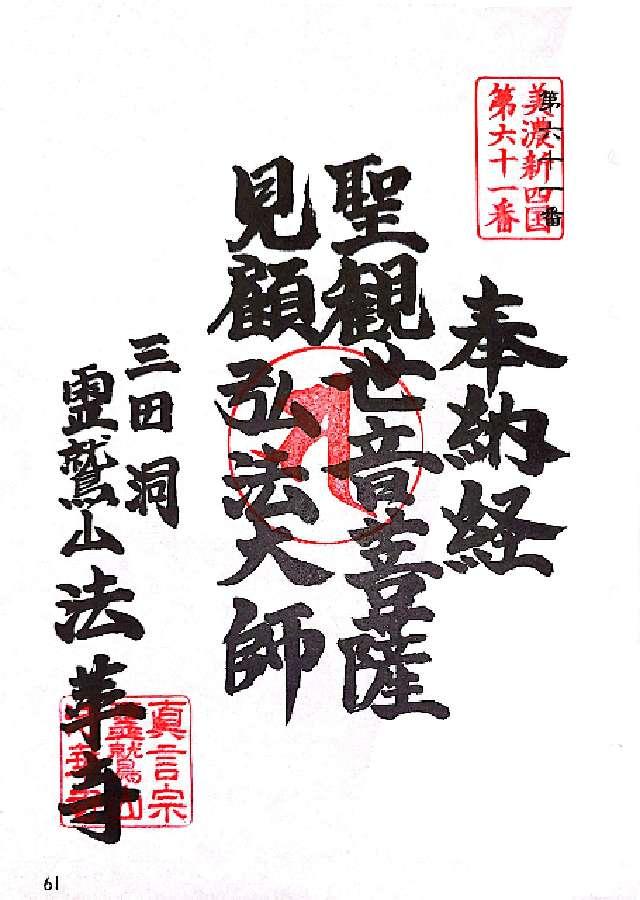 美濃新四国
第六十一番
第六十一番
奉納経
聖観世音菩薩
見顧弘法大師
三田洞
霊鷲山法華寺
真言宗
霊鷲山
法華寺
61